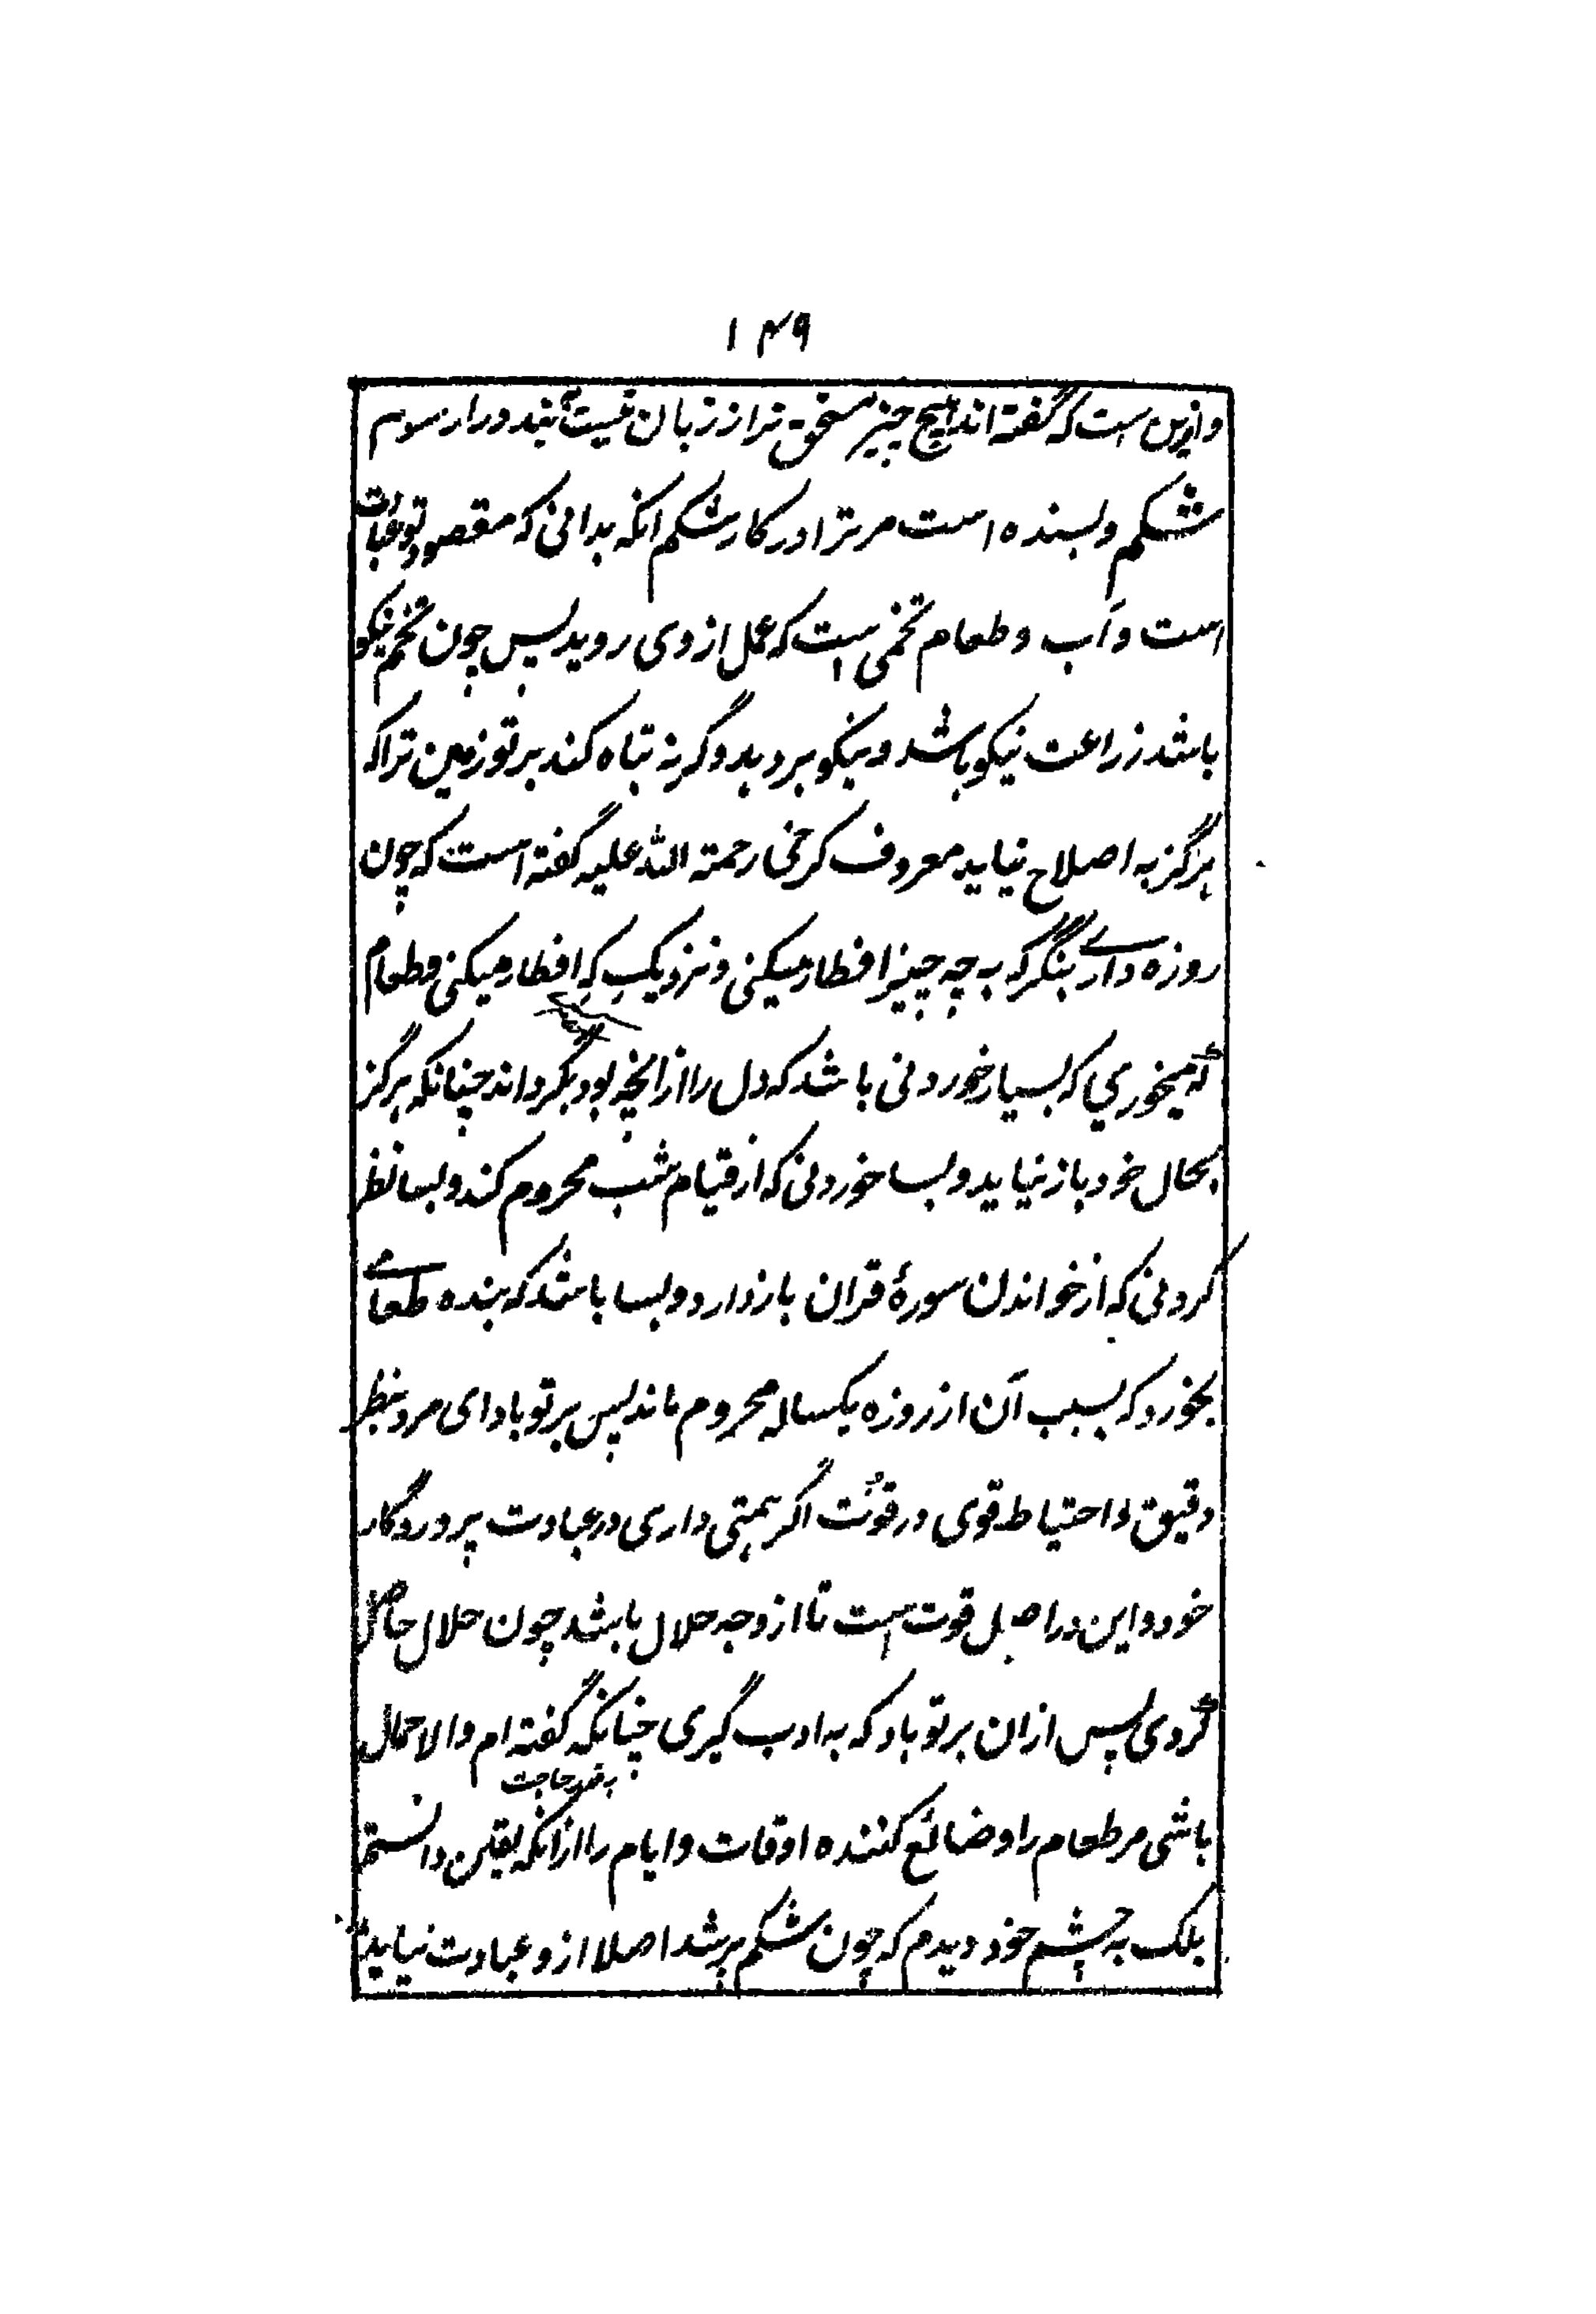 ۱۴۹
وازین است که گفته اند هیچ چیز مستحق تر از زبان نیست به بند ورا رسوم
شکم و بسنده است مر ترا در کار شکم انکه بدانی که مقصود تو عبادت
است و آب و طعام تخمی است که عمل از وی روید پس چون تخم نیکو
باشد زراعت نیکو باشد و نیکو بر دهد وگرنه تباه کند بر تو زمین ترا که
هرگز به اصلاح نیاید معروف کرخی رحمته الله علیه گفته است که چون
روزه داری بنگر که به چه چیز افطار میکنی و نزدیک که افطار میکنی و طعام
که میخوری که بسیار خوردنی باشد که دل را از انچه بود بگرداند چنانکه هرگز
بحال خود باز نیاید و بسا خوردنی که از قیام شب محروم کند و بسا نظر
کردنی که از خواندن سورهٔ قران باز دارد و بسا باشد که بنده طعامی
بخورد که بسبب آن از روزه یکساله محروم ماند پس بر تو باد ای مرد بنظر
دقیق و احتیاط قوی در قوت اگر همتی داری در عبادت پروردگار
خود و این در اصل قوت است تا از وجه حلال باشد چون حلال حاصل
کردی پس ازان بر تو باد که به ادب گیری چنانکه گفته ام والا حمال
بقدر حاجت
باشی مر طعام را و ضائع کننده اوقات و ایام را ازانکه یقین دانستم
بلک به چشم خود دیدم که چون شکم پر شد اصلا ازو عبادت نیاید